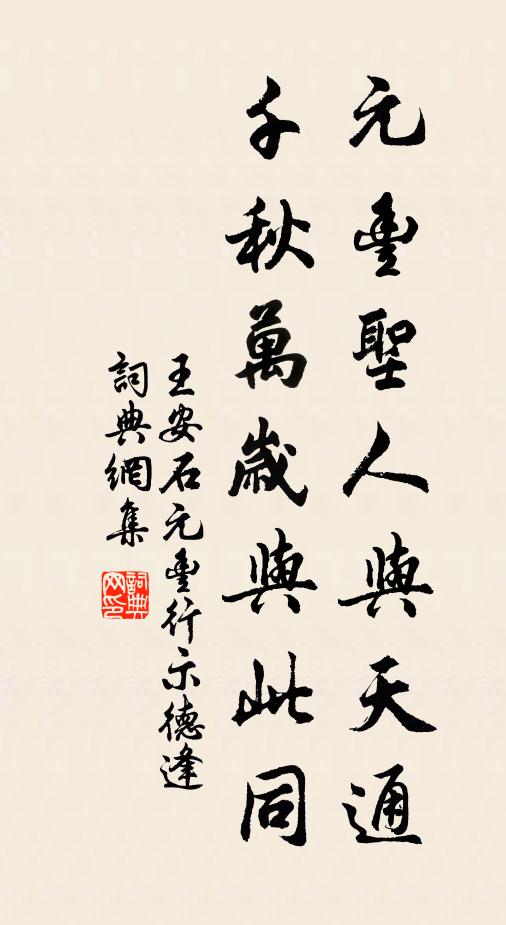 元豐聖人與天通
千秋萬歲與此同
王安石元豐行示德逢
詞典網集
詞典网印